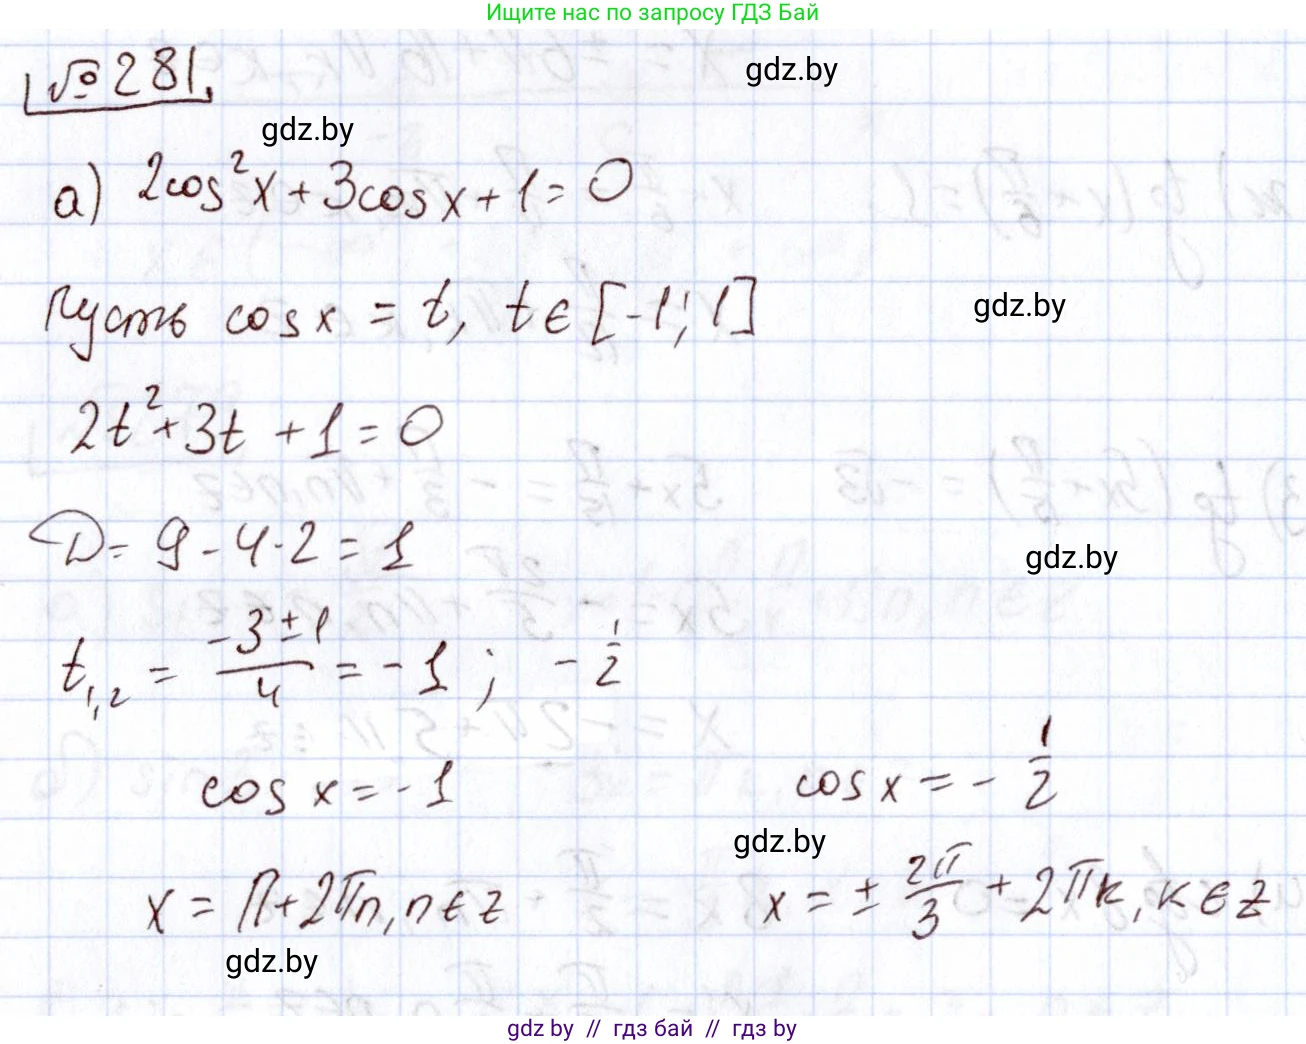 Ищите нас по запросу ГДЗ Бай
№281.
gdz.by
gdz.by
а) 2cos²x + 3cosx + 1 = 0
Пусть cosx = t, t ∈ [-1; 1]
gdz.by
2t² + 3t + 1 = 0
D = 9 - 4·2 = 1
gdz.by
t₁,₂ = (-3 ± 1)/4 = -1; -1/2
cosx = -1
cosx = -1/2
gdz.by
x = π + 2πn, n ∈ z
x = ± 2π/3 + 2πk, k ∈ z
gdz.by
gdz by // гдз бай // гдз by